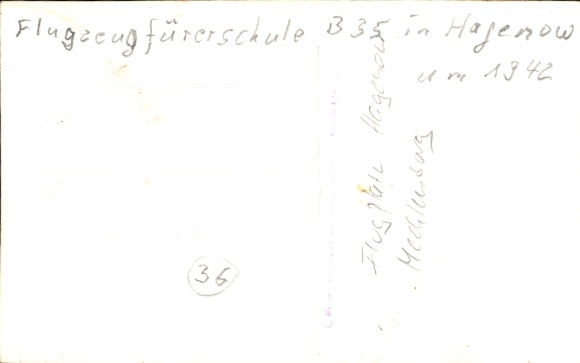 Flugzeugfürerschule B 35 in Hagenow
um 1942
Flugplatz Hagenow
Mecklenburg
36